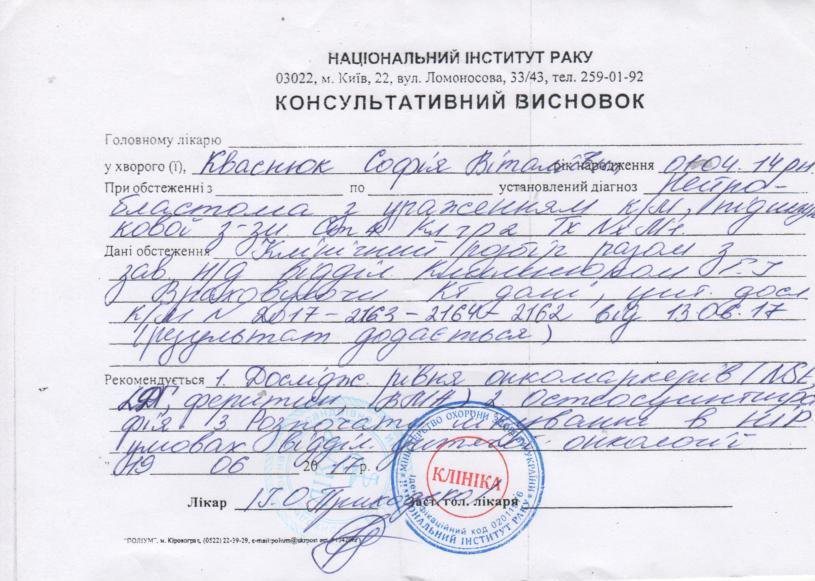 НАЦІОНАЛЬНИЙ ІНСТИТУТ РАКУ
03022, м. Київ, 22, вул. Ломоносова, 33/43, тел. 259-01-92
КОНСУЛЬТАТИВНИЙ ВИСНОВОК
Головному лікарю
у хворого (ї), Кваснюк Софія Віталіївна рік народження 01.04.14 рн
При обстеженні з по установлений діагноз Нейро-
бластома з ураженням к/м, підшлун
кової з-зи Ст 4 Кл гра Tx Nx M1.
Дані обстеження Клінічний розбір разом з
зав. н/д відділ Климнюком Г.І
Враховуючи КТ дані, цит. досл
к/м № 2017-2163-2164-2162 від 13.06.17
(результат додається)
Рекомендується 1. Дослідж. рівня онкомаркерів (NSE,
ЛДГ, феритин, ВМК) 2 Остеосцинтигра
фія 3 Розпочати лікування в НІР
умовах відділ дитячої онкології
" 19 06 2017 р.
Лікар Заст. гол. лікаря
МІНІСТЕРСТВО ОХОРОНИ ЗДОРОВ'Я УКРАЇНИ
НАЦІОНАЛЬНИЙ ІНСТИТУТ РАКУ
ідентифікаційний код
КЛІНІКА
"ПОЛІУМ", м. Кіровоград, (0522) 22-39-29, e-mail:polium@ukrpost